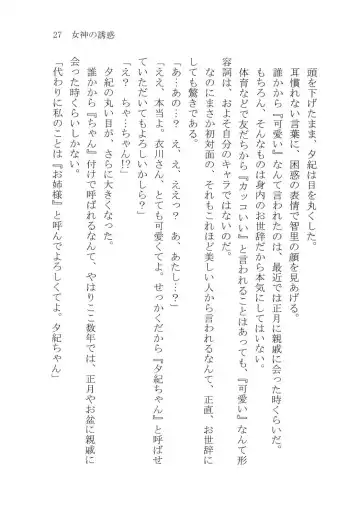 27　女神の誘惑
頭を下げたまま、夕紀は目を丸くした。
耳慣れない言葉に、困惑の表情で智里の顔を見あげる。
誰かから『可愛い』なんて言われたのは、最近では正月に親戚に会った時くらいだ。
もちろん、そんなものは身内のお世辞だから本気にしてはいない。
体育などで友だちから『カッコいい』と言われることはあっても、『可愛い』なんて形
容詞は、およそ自分のキャラではないのだ。
なのにまさか初対面の、それもこれほど美しい人から言われるなんて、正直、お世辞に
しても驚きである。
「あ…あの…？　え、え、ええっ？　あ、あたし…？」
「ええ、本当よ。衣川さん、とても可愛くてよ。せっかくだから『夕紀ちゃん』と呼ばせ
ていただいてもよろしいかしら？」
「え？　ちゃ…ちゃん!?」
夕紀の丸い目が、さらに大きくなった。
誰かから『ちゃん』付けで呼ばれるなんて、やはりここ数年では、正月やお盆に親戚に
会った時くらいしかない。
「代わりに私のことは『お姉様』と呼んでよろしくてよ。夕紀ちゃん」